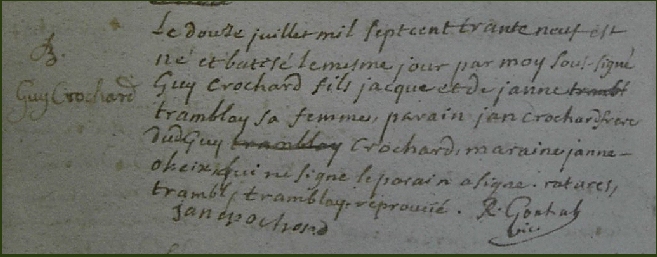 B.
Guy Crochard
Le douze juillet mil sept cent trante neuf est
né et batisé le mesme jour par moy sous-signé
Guy Crochard fils jacque et de janne trambl
tramblay sa femme, parain jan Crochard frere
dud Guy tramblay Crochard, maraine janne
qui ne signe le parain a signe. ratures,
trambl, tramblay, reprouvé. R. Gontal
vic
jan crochard